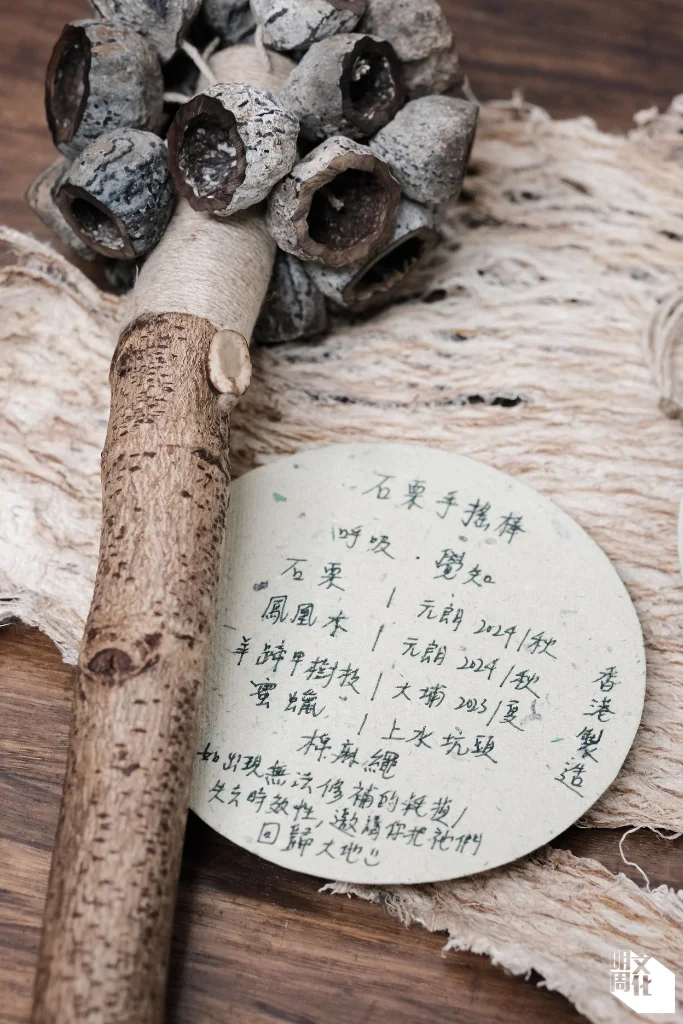 石栗手搖棒
呼吸．覺知
石栗 / 元朗 2024/秋
鳳凰木 / 元朗 2024/秋
羊蹄甲樹枝 / 大埔 2023/夏
蜜蠟 / 上水坑頭
棉麻繩
如出現無法修補的耗損/
失去時效性, 邀請你把祂們
回歸大地
香港製造
明周文化